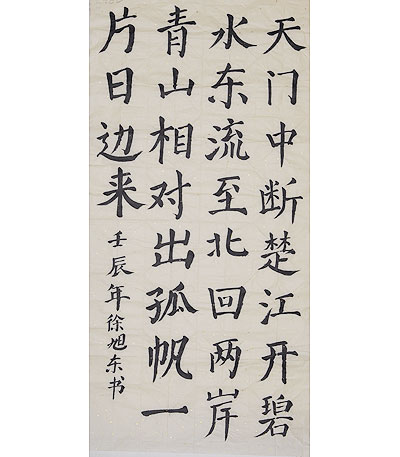 天门中断楚江开碧
水东流至北回两岸
青山相对出孤帆一
片日边来
壬辰年徐旭东书